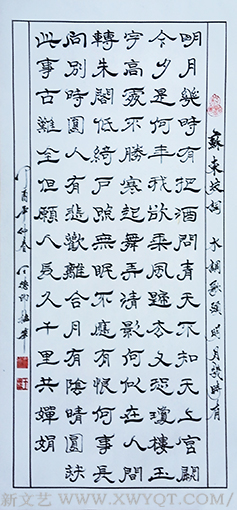 蘇東坡詞 水調歌頭 明月幾時有
明月幾時有把酒問青天不知天上宮闕
今夕是何年我欲乘風歸去又恐瓊樓玉
宇高處不勝寒起舞弄清影何似在人間
轉朱閣低綺戶照無眠不應有恨何事長
向別時圓人有悲歡離合月有陰晴圓缺
此事古難全但願人長久千里共嬋娟
酉年仲春
新文艺 WWW.XWYQT.COM/